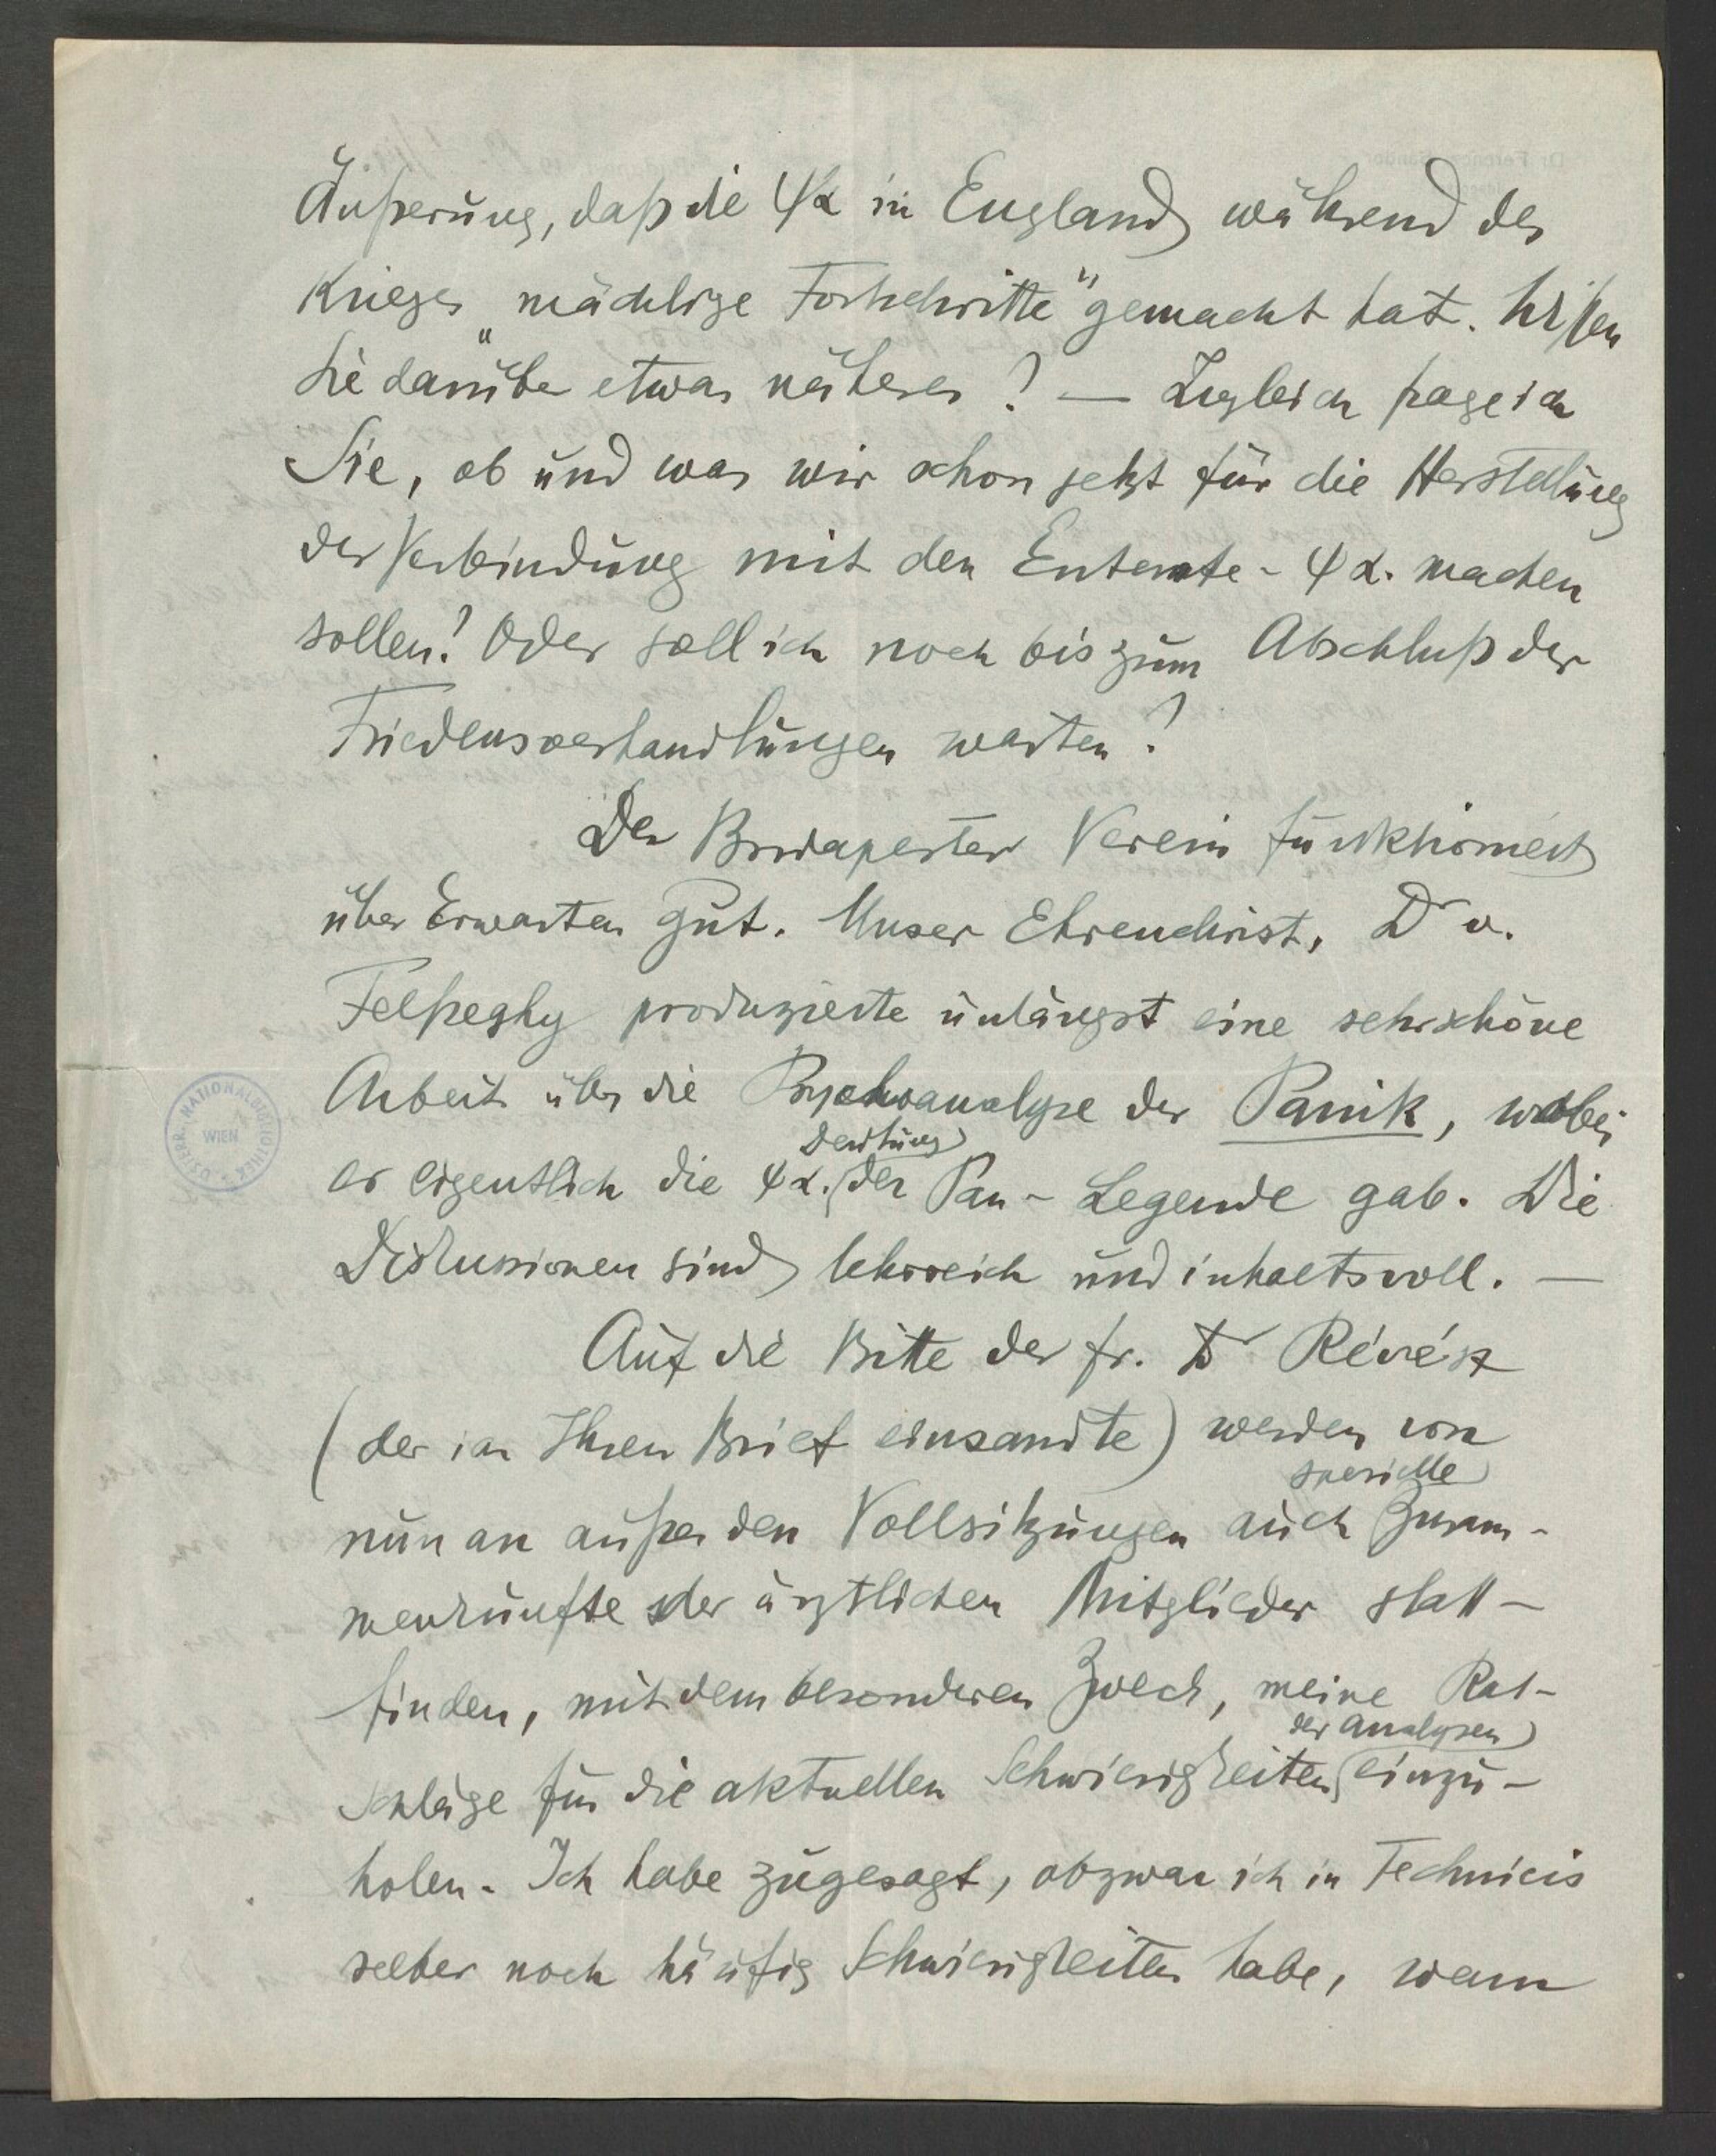 Äußerung, daß die ψα in England während des
Krieges „mächtige Fortschritte" gemacht hat. Wissen
Sie darüber etwas näheres? — Zugleich frage ich
Sie, ob und was wir schon jetzt für die Herstellung
der Verbindung mit den Entente-ψα. machen
sollen? Oder soll ich noch bis zum Abschluß der
Friedensverhandlungen warten?
Der Budapester Verein funktioniert
über Erwarten gut. Unser Ehrenchrist, Dr v.
Felßeghy produzierte unlängst eine sehr schöne
Arbeit über die Psychoanalyse der Panik, wobei
er eigentlich die ψα. Deutung der Pan-Legende gab. Die
Diskussionen sind lehrreich und inhaltsvoll. —
Auf die Bitte der Fr. Dr Révész
(der ich Ihren Brief einsandte) werden von
nun an außer den Vollsitzungen auch spezielle Zusam-
menkünfte der ärztlichen Mitglieder statt-
finden, mit dem besonderen Zweck, meine Rat-
schläge für die aktuellen Schwierigkeiten der Analysen einzu-
holen. Ich habe zugesagt, obzwar ich in Technicis
selber noch häufig Schwierigkeiten habe, wenn
ÖSTERR. NATIONALBIBLIOTHEK
WIEN